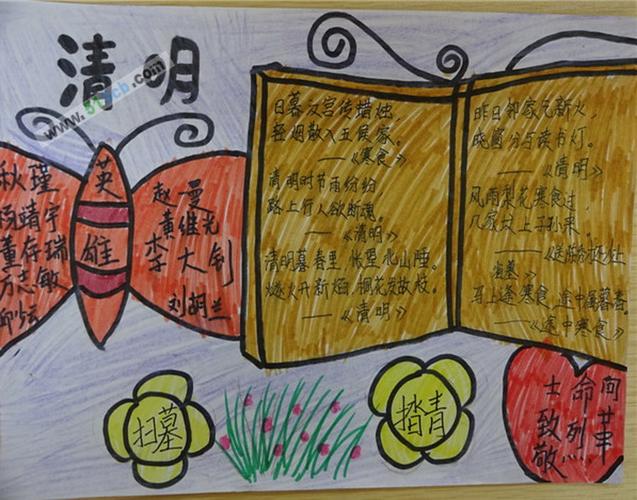 清明
秋瑾
杨靖宇
董存瑞
方志敏
邱少云
英
雄
赵一曼
黄继光
李大钊
刘胡兰
日暮汉宫传蜡烛,
轻烟散入五侯家。
——《寒食》
清明时节雨纷纷,
路上行人欲断魂。
——《清明》
清明暮春里,怅望北山陲。
燧火开新焰,桐花发故枝。
——《清明》
昨日邻家乞新火,
晓窗分与读书灯。
——《清明》
风雨梨花寒食过,
几家坟上子孙来。
——《送陈秀才还沙上
省墓》
马上逢寒食,途中属暮春。
——《途中寒食》
扫墓
踏青
向革
命烈
士致敬